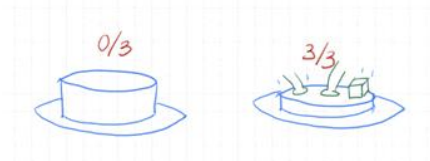 0/3
3/3